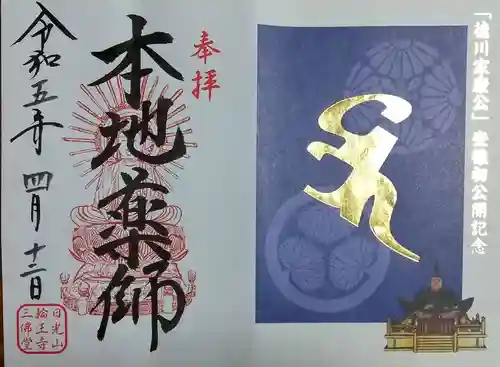 「徳川家康公」坐像初公開記念
奉拝
本地薬師
令和五年四月十二日
日光山
輪王寺
三佛堂